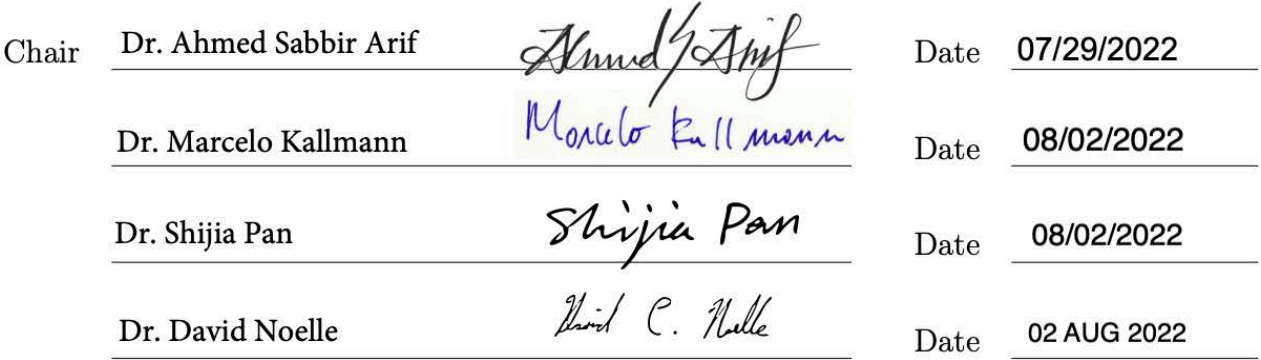 Chair Dr. Ahmed Sabbir Arif Ahmed S Arif Date 07/29/2022
Dr. Marcelo Kallmann Marcelo Kallmann Date 08/02/2022
Dr. Shijia Pan Shijia Pan Date 08/02/2022
Dr. David Noelle David C. Noelle Date 02 AUG 2022